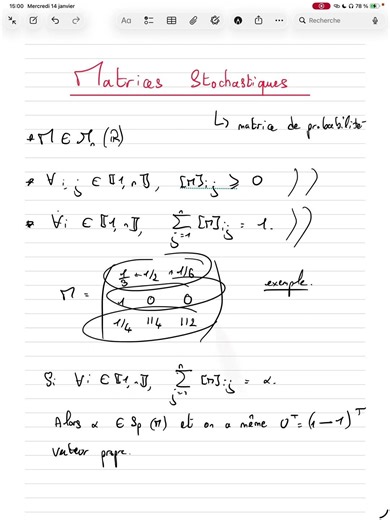 15:00 Mercredi 14 janvier
78 %
Aa
Recherche
Matrices Stochastiques
↳ matrice de probabilité
* M ∈ M_n (ℝ)
* ∀ i, j ∈ ⟦1, n⟧, [M]_ij ≥ 0
* ∀i ∈ ⟦1, n⟧, ∑_{j=1}^{n} [M]_ij = 1.
M = ( 1/3 + 1/2 + 1/6
1 0 0
1/4 1/4 1/2 )
exemple.
Si ∀i ∈ ⟦1, n⟧, ∑_{j=1}^{n} [M]_ij = α.
Alors α ∈ Sp (M) et on a même U^T = (1 — 1)^T
vecteur propre.